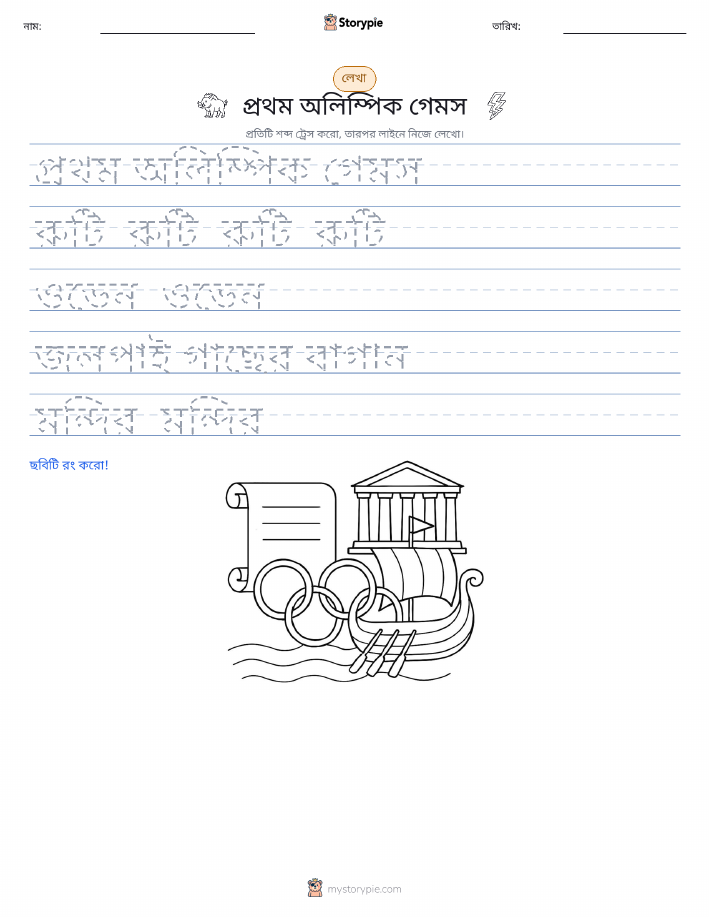 নাম:
Storypie
তারিখ:
লেখা
প্রথম অলিম্পিক গেমস
প্রতিটি শব্দ ট্রেস করো, তারপর লাইনে নিজে লেখো।
প্রথম অলিম্পিক গেমস
রুটি রুটি রুটি রুটি
ওডেন ওডেন
জলপাই গাছের বাগান
মন্দির মন্দির
ছবিটি রং করো!
mystorypie.com